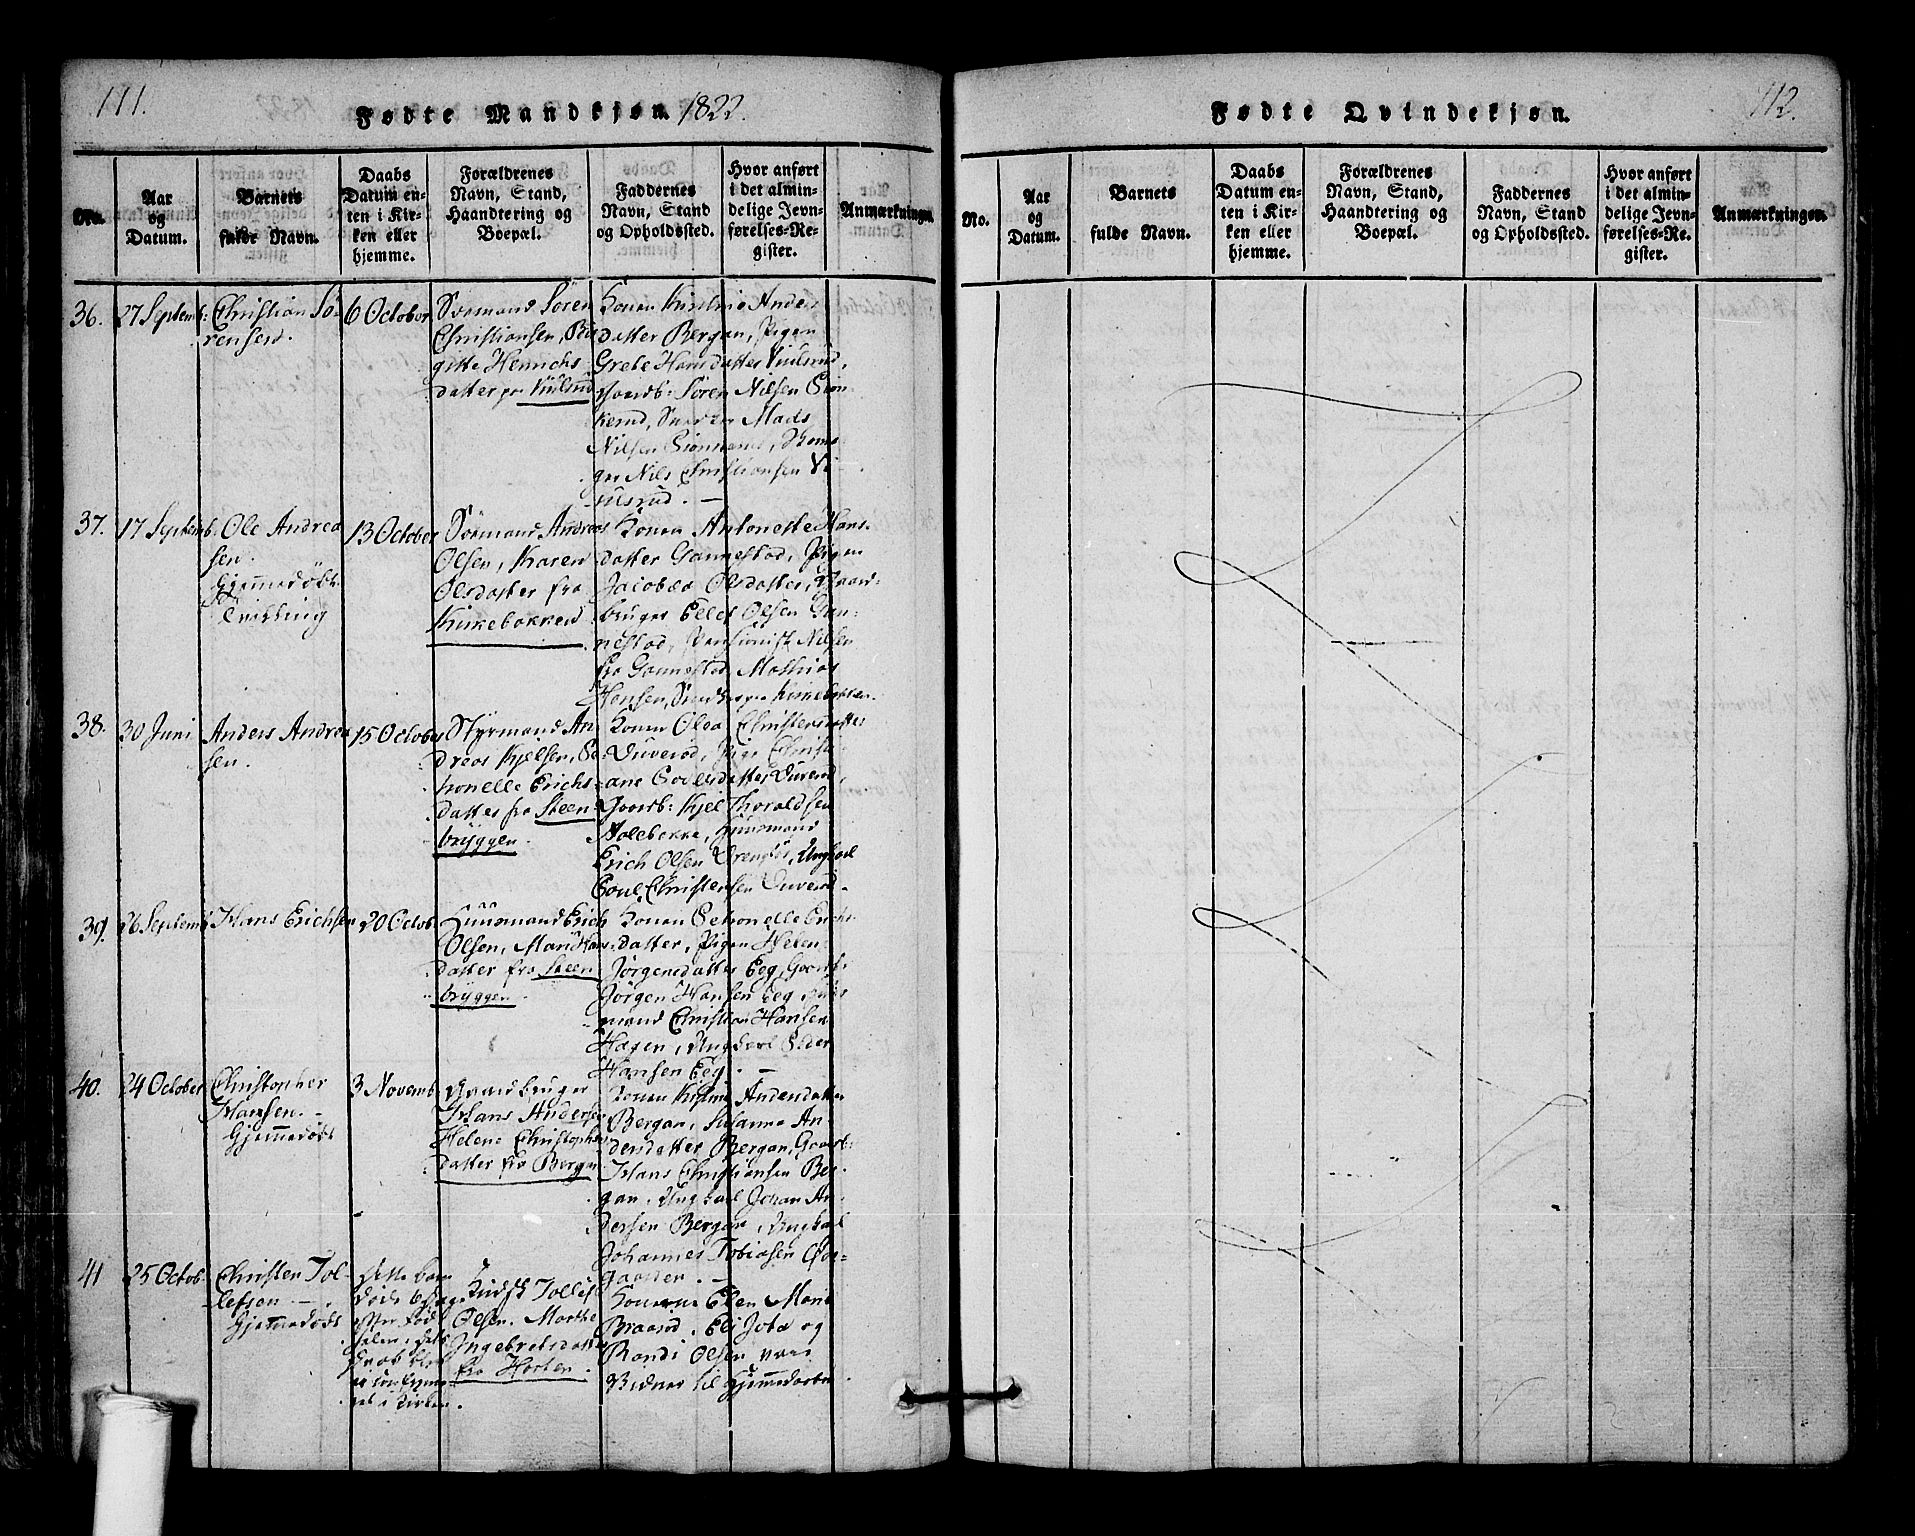 111.
Fødte Mandkjøn. 1822.
No.
Aar
og
Datum.
Barnets
fulde Navn.
Daabs
Datum en-
ten i Kir-
ken eller
hjemme.
Forældrenes
Navn, Stand,
Haandtering og
Boepæl.
Faddernes
Navn, Stand
og Opholdssted.
Hvor anført
i det almin-
delige Jevn-
førelses-Re-
gister.
Anmærkninger.
36.
27 Septemb:
Christian Sö-
rensen.
6 October
Sömand Sören
Christiansen, Bir
gitte Henrichs
datter
Konen Kirstine Anders
datter Bergan, Pigen
Grete Hansdatter
Gaardb: Sören Nilsen
Mads
Nilsen
Nils Christiansen
37.
17 Septemb:
Ole Andrea
sen.
Gjemmedöbt.
Tvilling
13 October
Sömand Andreas
Olsen, Karen
Olsdatter fra
Kirkebakken
Konen Antonette Hans-
datter Gannestad, Pigen
Jacobæa Olsdatter, Gaard-
bruger Ellef Olsen Gan-
nestad, Nilsen
fra Gannestad Mathias
Hansen, Kirkebakken
38.
30 Juni
Anders Andrea
sen.
15 October
Styrmand An
dreas Kjelsen, Pe
tronelle Erichs-
datter fra Steen
bryggen.
Konen Olea Christensdatter
Duverød, Pige Christi
ane Poulsdatter Duverød,
Gaardb: Kjel Thoraldsen
Holebakke, Huusmand
Erich Olsen Drengsr, Ungkarl
Poul Christensen Duverød.
39.
26 Septemb
Hans Erichsen
20 Octob.
Huusmand Erich
Olsen, Maria Hans-
datter fra Steen
bryggen.
Konen Petronelle Erichs
datter, Pigen Helene
Jörgensdatter Eeg, Gaardb.
Jörgen Hansen Eeg, Huus
mand Christian Hansen
Hagen, Ungkarl Peder
Hansen Eeg. —
40.
24 October
Christopher
Hansen. -
Gjemmedöbt
3 Novemb
Gaardbruger
Hans Andersen
Helene Christophers
datter fra Bergan
Konen Kirstine Andersdatter
Bergan, Susanne An-
dersdatter Bergan, Gaardb:
Hans Christiansen Ber-
gan, Ungkarl Johan An-
dersen Bergan, Ungkarl
Johannes Tobiasen
41
25 Octob.
Christen Tol-
lefsen —.
Gjemmedöbt
dette barn
döde
efter Föd
selen, dets
Daab blev
ei
i Kirken.
Tollef
Olsen. Marthe
Ingebretsdatter
fra Horten.
Konerne Ellen Marie
Braarud, Eli Joba og
Randi Olsen vare
Vidner til Gjemmedaaben
112.
Fødte Qvindekjøn.
No.
Aar
og
Datum.
Barnets
fulde Navn.
Daabs
Datum en-
ten i Kir-
ken eller
hjemme.
Forældrenes
Navn, Stand,
Haandtering og
Boepæl.
Faddernes
Navn, Stand
og Opholdssted.
Hvor anført
i det almin-
delige Jevn-
førelses-Re-
gister.
Anmærkninger.